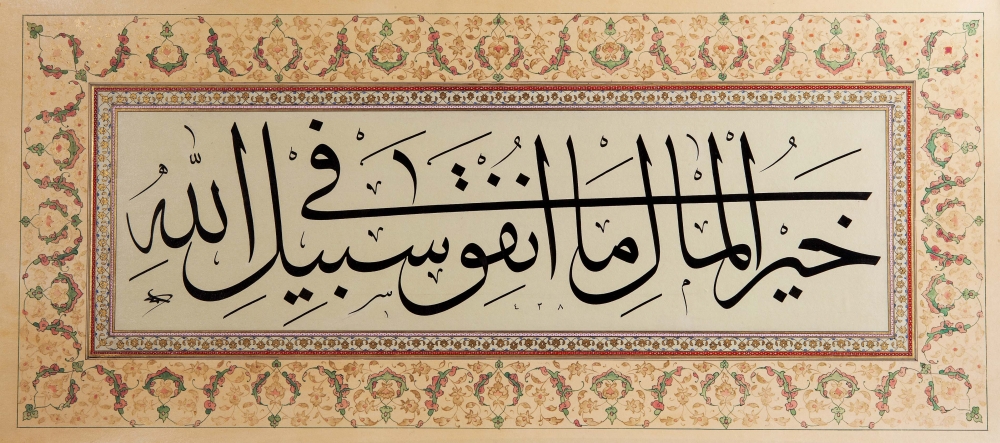 خَيْرُ الْمَالِ مَا اُنْفِقَ فِي سَبِيلِ اللّٰهِ
١٤٣٨